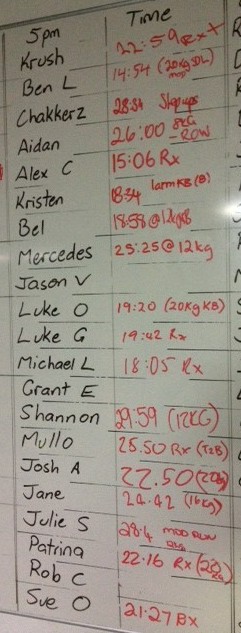 5pm Time
Krush 22:59 Rx
Ben L 14:54 (20kg SDL) mod
Chakkerz 28:54 Stepups
Aidan 26:00 8KG ROW
Alex C 15:06 Rx
Kristen 18:34 (B)
Bel 18:58 @ 12kgKB
Mercedes 25:25 @ 12kg
Jason V
Luke O 19:20 (20Kg KB)
Luke G 19:42 Rx
Michael L 18:05 Rx
Grant E
Shannon 29:59 (12KG)
Mullo 25.50 Rx (T2B)
Josh A 22.50 (20kg)
Jane 24.42 (16kg)
Julie S 28:4 MOD RUN
Patrina 22:16 Rx (20kg)
Rob C
Sue O 21:27 Rx